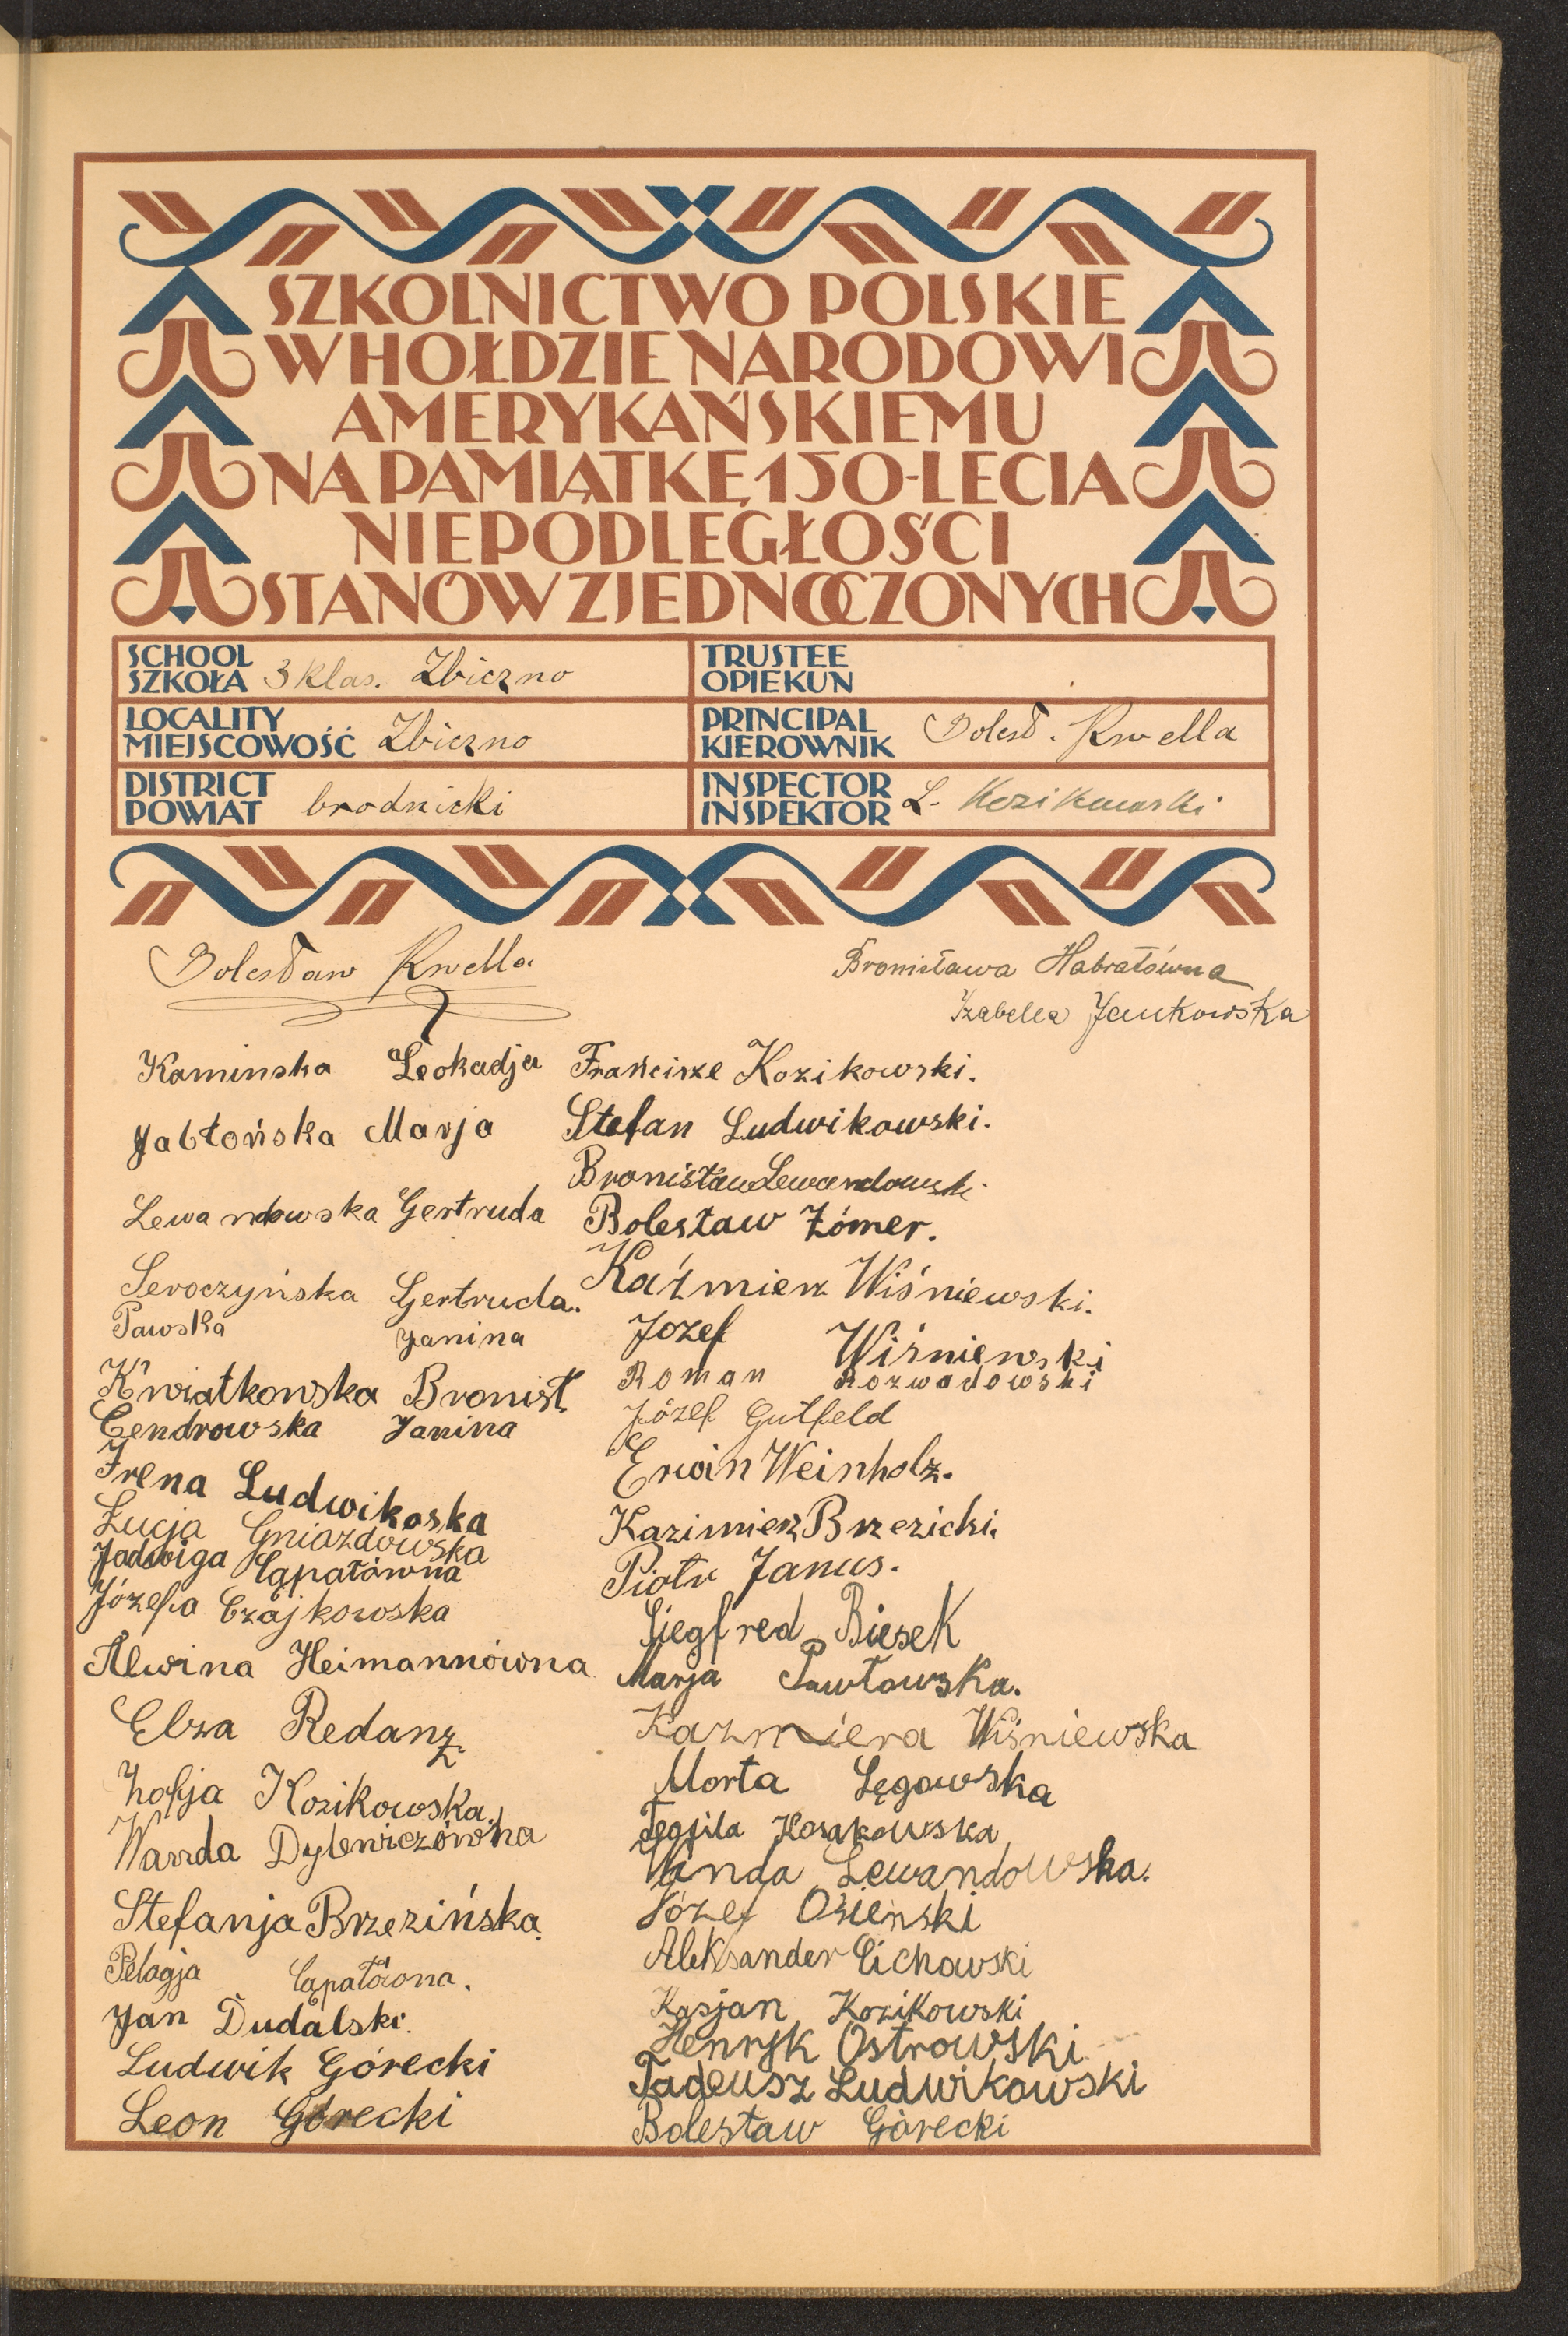 SZKOLNICTWO POLSKIE
W HOŁDZIE NARODOWI
AMERYKAŃSKIEMU
NA PAMIĄTKĘ 150-LECIA
NIEPODLEGŁOŚCI
STANÓW ZJEDNOCZONYCH
SCHOOL
SZKOŁA 3 klas. Zbiczno
TRUSTEE
OPIEKUN
LOCALITY
MIEJSCOWOŚĆ Zbiczno
PRINCIPAL
KIEROWNIK Bolesł. Kwella
DISTRICT
POWIAT brodnicki
INSPECTOR
INSPEKTOR L. Kozikowski
Bolesław Kwella
Bronisława Habrałówna
Izabella Jankowska
Kaminska Leokadja
Jabłońska Marja
Lewandowska Gertruda
Seroczyńska Gertruda.
Pawska Janina
Kwiatkowska Bronisł.
Cendrowska Janina
Irena Ludwikoska
Łucja Gniazdowska
Jadwiga Capałówna
Józefa Czajkowska
Alwina Heimannówna
Elza Redanz
Zofja Kozikowska.
Wanda Dylewiczówna
Stefanja Brzezińska.
Pelagja Capałówna.
Jan Dudalski.
Ludwik Górecki
Leon Górecki
Franciszek Kozikowski.
Stefan Ludwikowski.
Bronisław Lewandowski
Bolesław Zómer.
Kaźmierz Wiśniewski.
Jozef Wiśniewski
Roman Rozwadowski
Józef Gutfeld
Erwin Weinholz.
Kazimierz Brzezicki.
Piotr Janus.
Siegfred Biesek
Marja Pawłowska.
Kazmiera Wiśniewska
Marta Łęgowska
Teofila Kosakowska
Wanda Lewandowska.
Józef Osieński
Aleksander Cichowski
Kasjan Kozikowski
Henryk Ostrowski
Tadeusz Ludwikowski
Bolesław Górecki